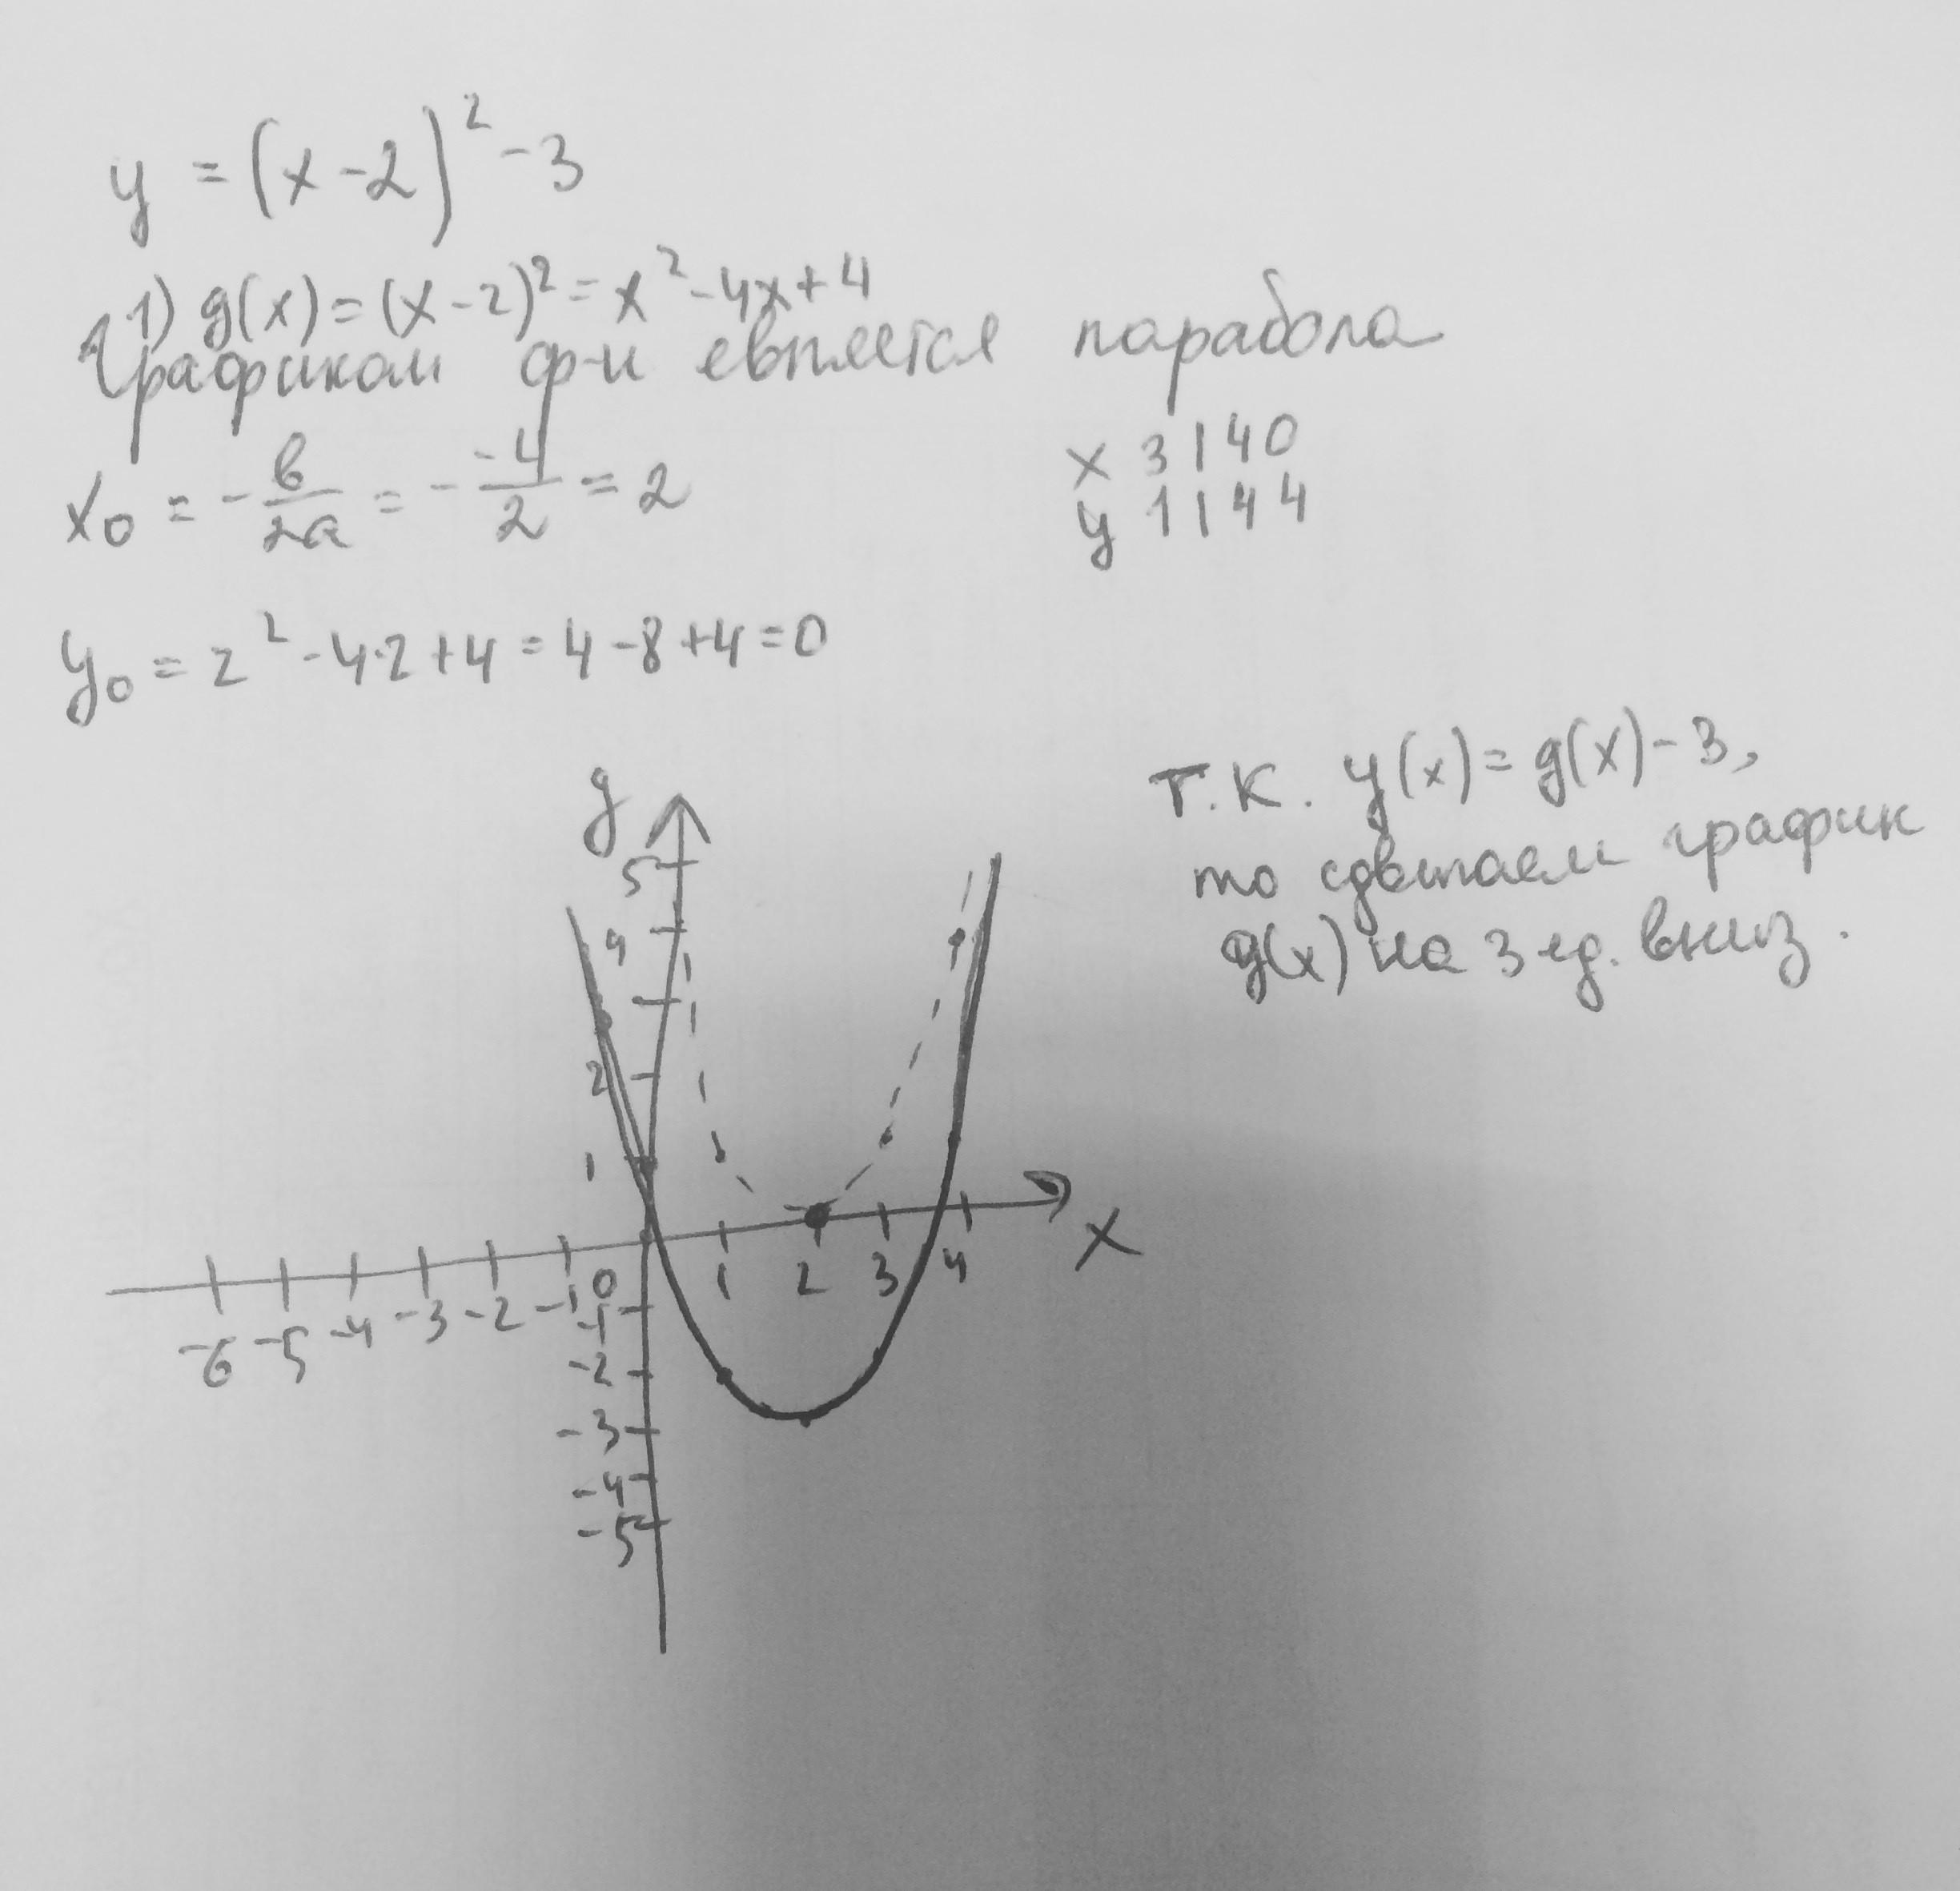 y = (x-2)² -3
1) g(x) = (x-2)² = x² -4x+4
Графиком ф-и евляется парабола
x 3 1 4 0
y 1 1 4 4
x₀ = -в/2a = - -4/2 = 2
y₀ = 2² -4·2+4 = 4-8+4=0
т.к. y(x) = g(x)-3,
то сдвигаем график
g(x) на 3 ед. вниз.
y
5
4
2
1
x
-6 -5 -4 -3 -2 -1 0 1 2 3 4
-1
-2
-3
-4
-5